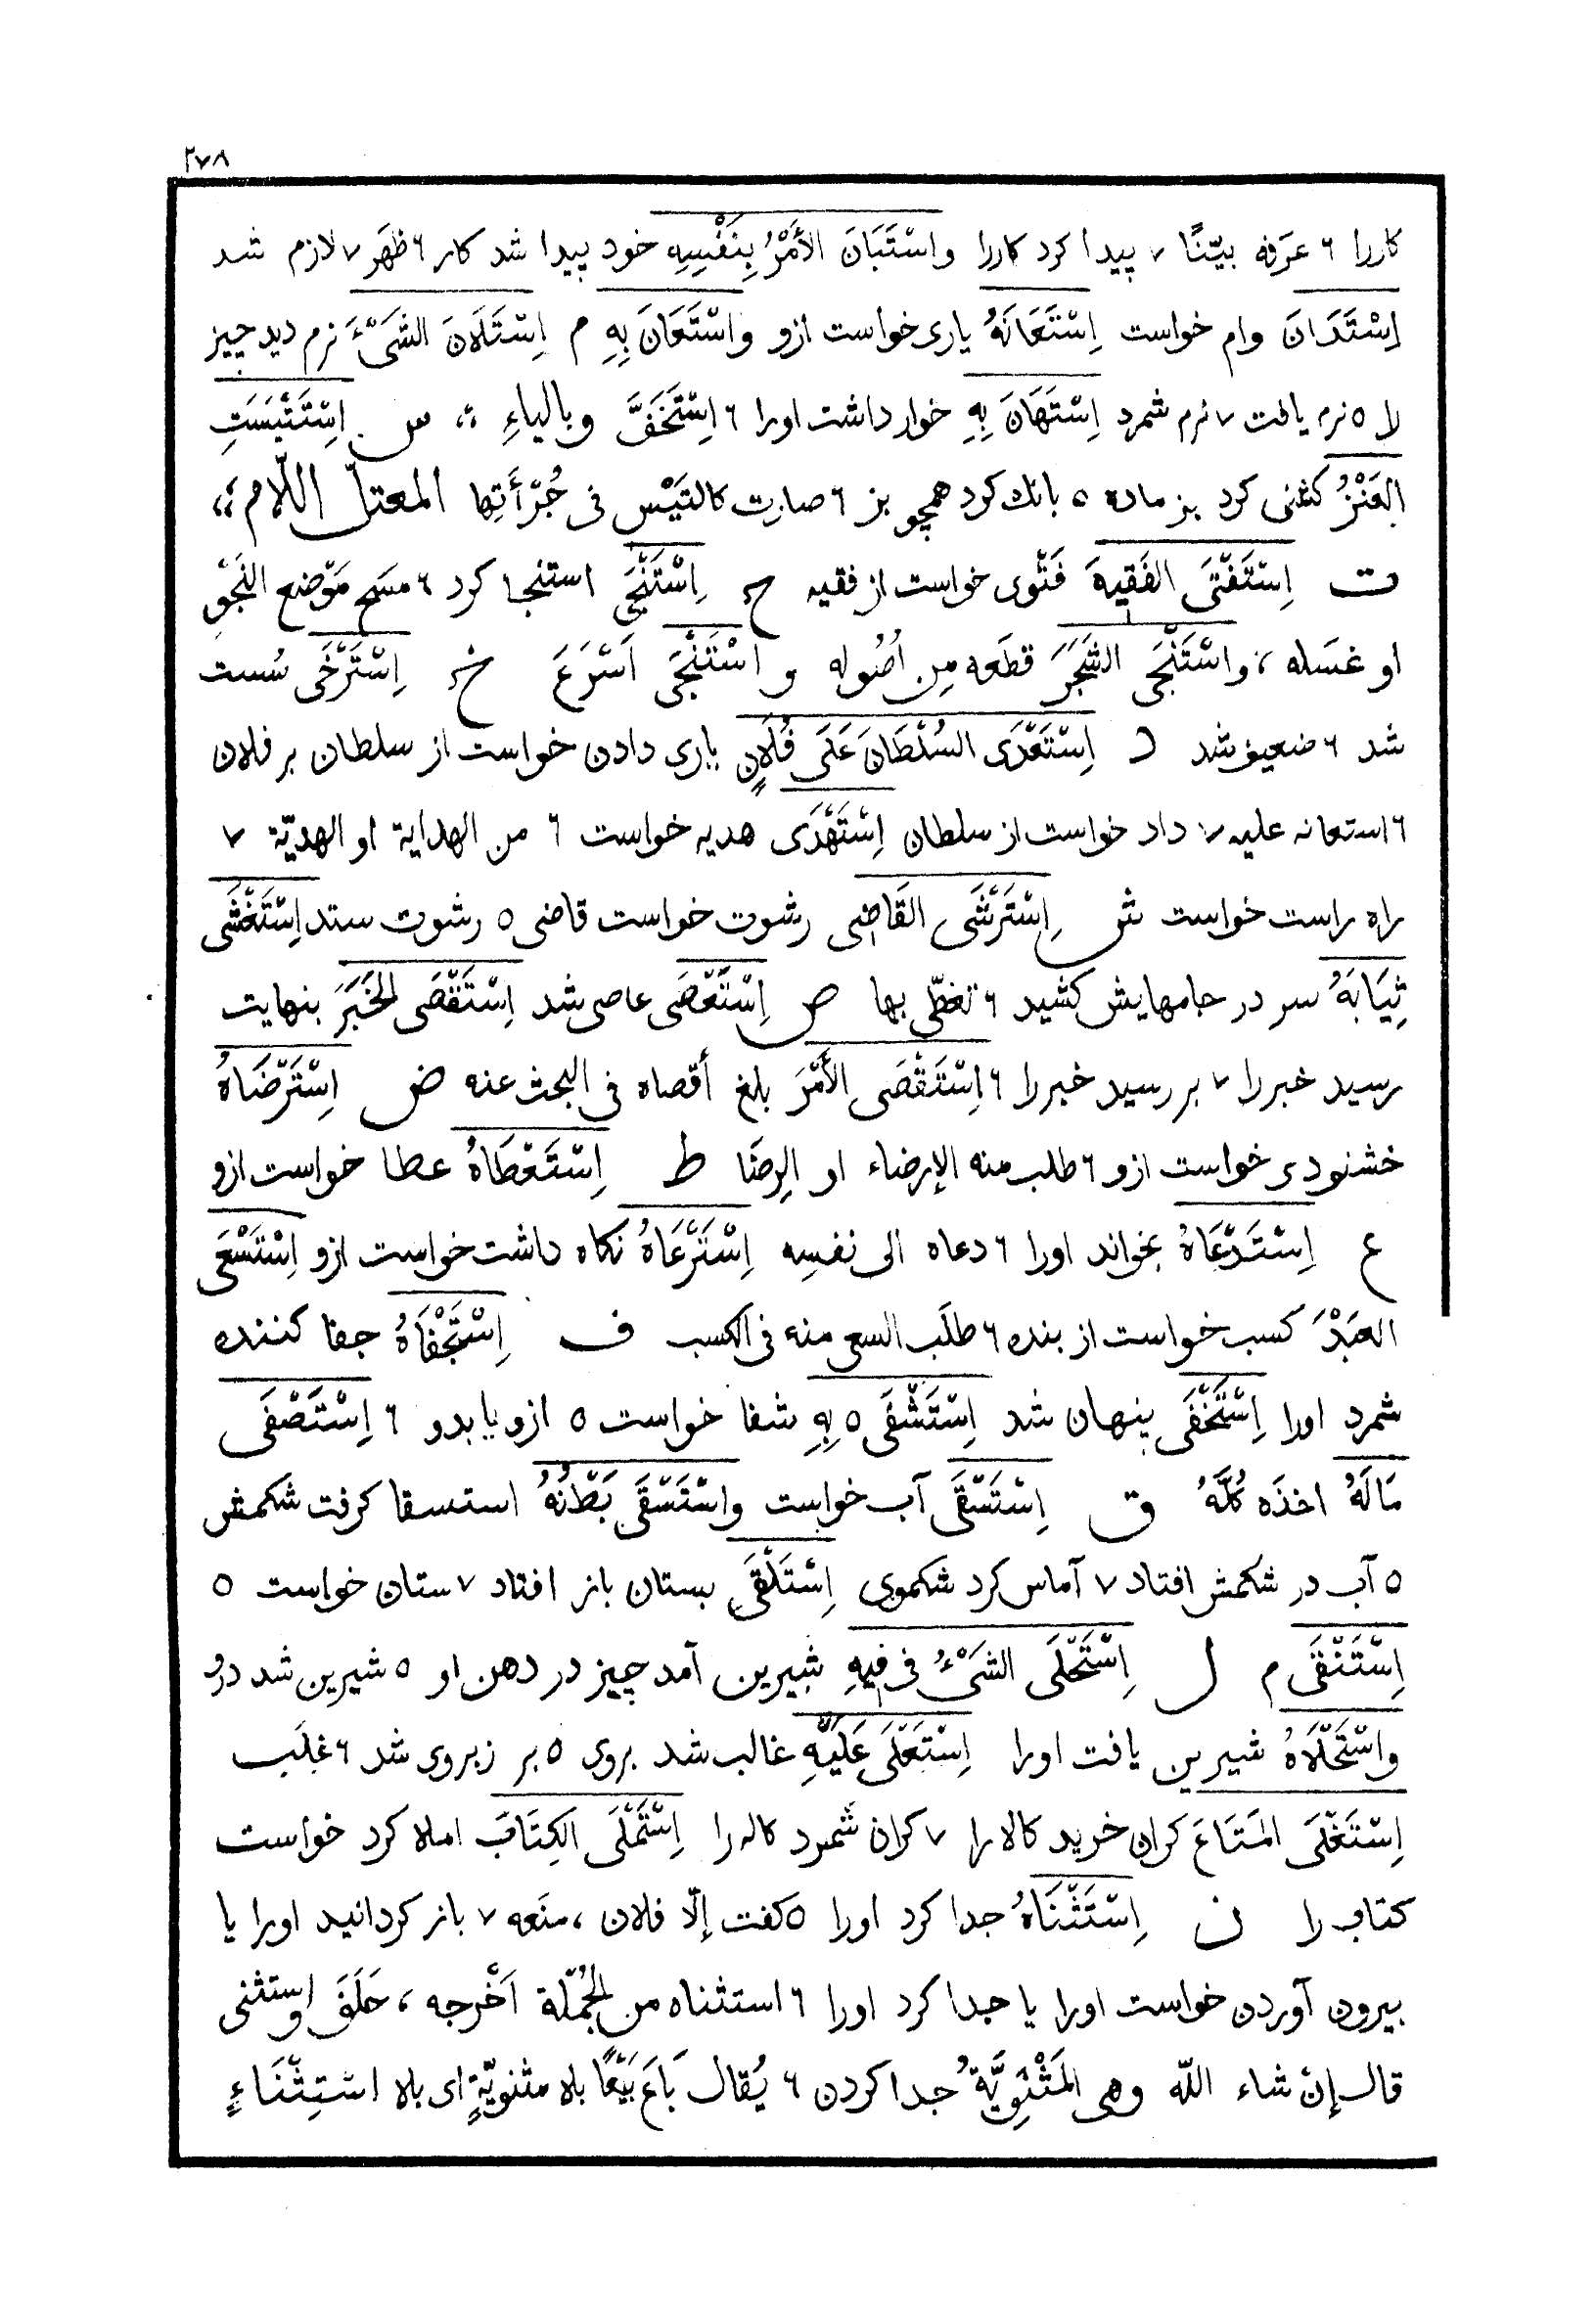 ٢٧٨
کاررا ٦ عرَفه بيّنًا ٧ پیدا کرد کاررا واسْتَبَانَ الأَمْرُ بِنَفْسِهِ خود پیدا شد کار ٦ ظهَر ٧ لازم شد
اِسْتَدَانَ وام خواست اِسْتَعَانَهُ یاری خواست ازو واسْتَعَانَ بِهِ م اِسْتَلَانَ الشَیْءَ نرم دید چیز
لا ٥ نرم یافت ٧ نرم شمرد اِسْتَهَانَ بِهِ خوار داشت اورا ٦ اِسْتَخَفَّ وبالیاءِ ،، س اِسْتَتْيَسَتِ
العَنْزُ کشنی کرد بز ماده ٥ بانك کرد همچو بز ٦ صارت کالتَيْس فی جُرْأَتِها المعتلّ اللّام ،،
ت اِسْتَفْتَی الفَقِیهَ فَتْوی خواست از فقیه ح اِسْتَنْجَی استنجا کرد ٦ مسَح مَوْضع النَجْوِ
او غسَله ، واسْتَنْجَی الشَجَرَ قطَعه مِن اُصُوله و اسْتَنْجَی اَسْرَعَ خ اِسْتَرْخَی سُست
شد ٦ ضعیف شد د اِسْتَعْدَی السُلْطَانَ عَلَی فُلَانٍ یاری دادن خواست از سلطان بر فلان
٦ استعانه علیه ٧ داد خواست از سلطان اِسْتَهْدَی هدیه خواست ٦ من الهدایة او الهدیّة ٧
راه راست خواست ش اِسْتَرْشَی القَاضِی رشوت خواست قاضی ٥ رشوت ستد اِسْتَغْشَی
ثِیَابَهُ سر در جامهایش کشید ٦ تغطّی بها ص اِسْتَعْصَی عاصی شد اِسْتَقْصَی الخَبَرَ بنهایت
رسید خبررا ٧ بررسید خبررا ٦ اِسْتَقْصَی الأَمْرَ بلغ أقصاه فی البحث عنه ض اِسْتَرْضَاهُ
خشنودی خواست ازو ٦ طلب منه الإرضاء او الرِضَا ط اِسْتَعْطَاهُ عطا خواست ازو
ع اِسْتَدْعَاهُ بخواند اورا ٦ دعاه الی نفسِه اِسْتَرْعَاهُ نکاه داشت خواست ازو اِسْتَسْعَی
العَبْدَ کسب خواست از بنده ٦ طلَب السعی منه فی الکسب ف اِسْتَجْفَاهُ جفا کننده
شمرد اورا اِسْتَخْفَی پنهان شد اِسْتَشْفَی ٥ بِهِ شفا خواست ٥ ازو یا بدو ٦ اِسْتَصْفَی
مَالَهُ اخذَه کُلَّهُ ق اِسْتَسْقَی آب خواست واسْتَسْقَی بَطْنُهُ استسقا کرفت شکمش
٥ آب در شکمش افتاد ٧ آماس کرد شکموی اِسْتَلْقَی بستان باز افتاد ٧ ستان خواست ٥
اِسْتَنْقَی م ل اِسْتَحْلَی الشَیْءُ فی فِیهِ شیرین آمد چیز در دهن او ٥ شیرین شد درو
واسْتَحْلَاهُ شیرین یافت اورا اِسْتَعْلَی عَلَیْهِ غالب شد بروی ٥ بر زبروی شد ٦ غلَب
اِسْتَغْلَی المَتَاعَ کران خرید کالا را ٧ کران شمرد کاله را اِسْتَمْلَی الکِتَابَ املا کرد خواست
کتاب را ن اِسْتَثْنَاهُ جدا کرد اورا ٥ کفت إلّا فلان ، منَعه ٧ باز کردانید اورا یا
بیرون آوردن خواست اورا یا جدا کرد اورا ٦ استثناه من الجُمْلة اَخْرجه ، حَلَفَ واستثنی
قال إن شاء اللّه وهی المَثْنَوِیَّةُ جدا کردن ٦ یُقال بَاعَ بَیْعًا بلا مثنویّةٍ ای بلا اسْتِثْنَاءٍ